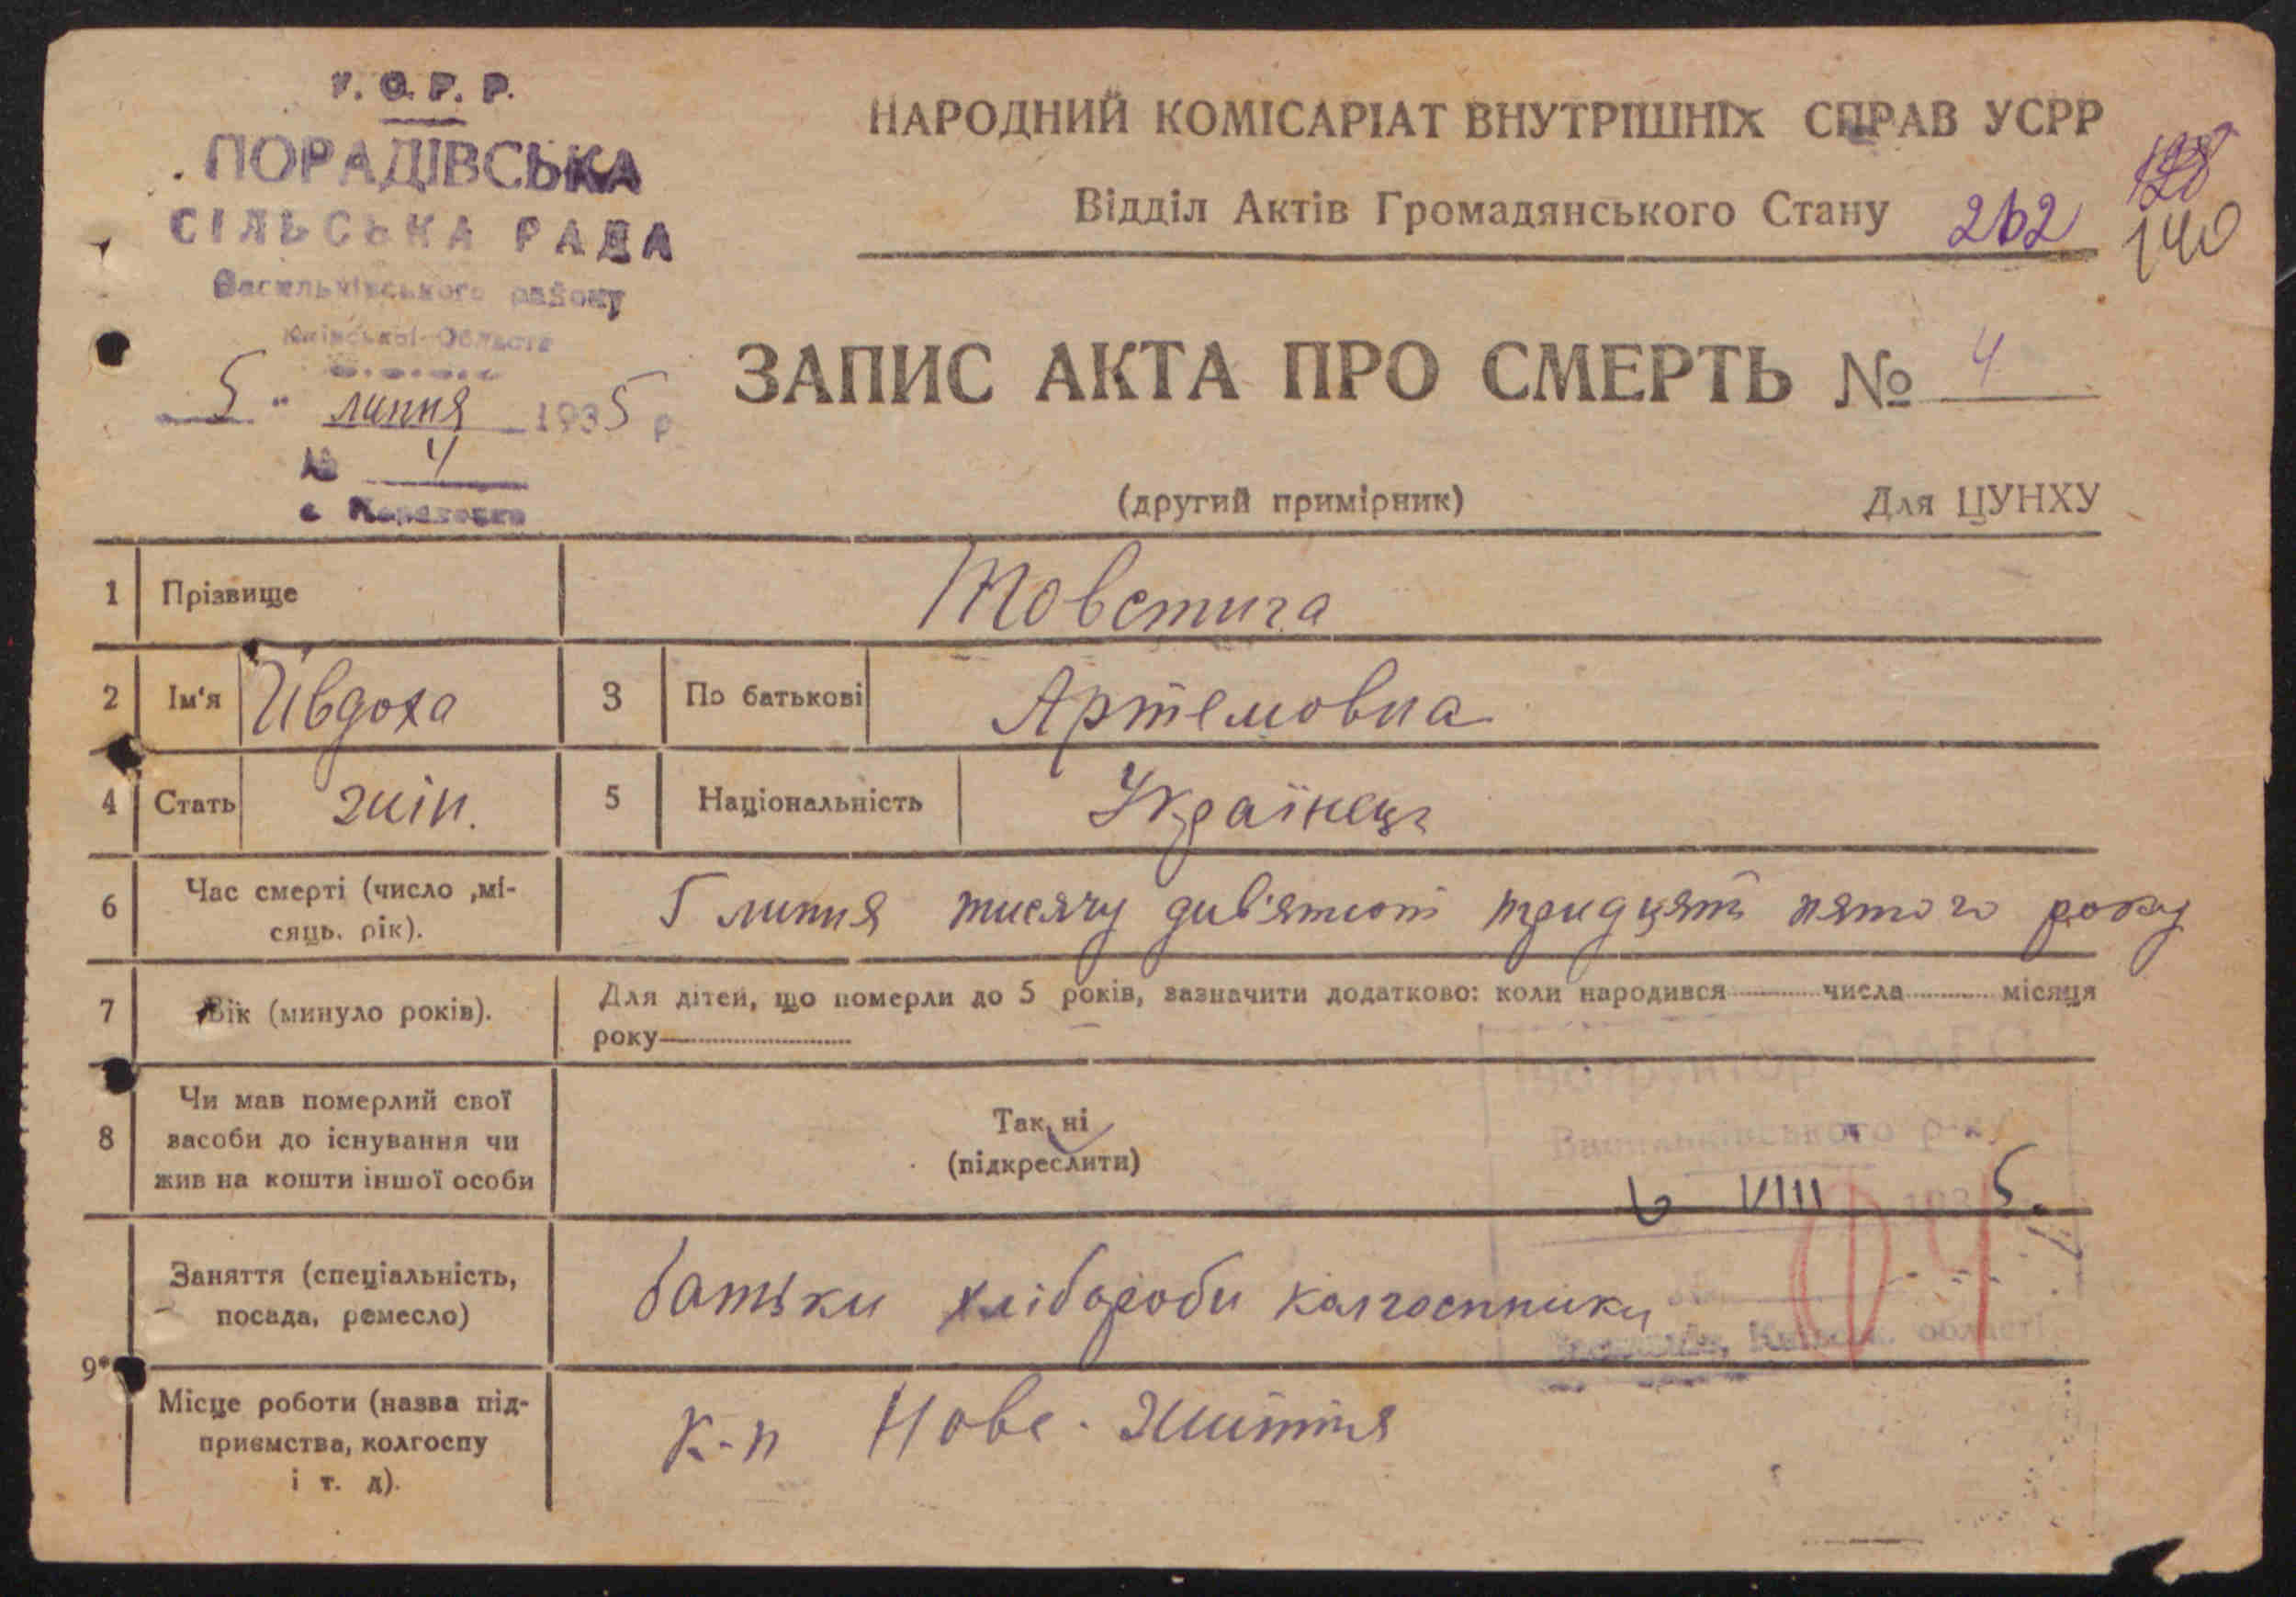 У. С. Р. Р.
ПОРАДІВСЬКА
СІЛЬСЬКА РАДА
Васильківського району
Київської Области
5 " липня 1935 р
№ 4
с Порадовка
НАРОДНИЙ КОМІСАРІАТ ВНУТРІШНІХ СПРАВ УСРР
Відділ Актів Громадянського Стану 262
128
140
ЗАПИС АКТА ПРО СМЕРТЬ № 4
(другий примірник) Для ЦУНХУ
1 Прізвище Товстига
2 Ім'я Ивдоха 3 По батькові Артемовна
4 Стать жін. 5 Національність Українец
6 Час смерті (число ,мі-
сяць. рік).
5 липня тисячу дивʼятсот тридцять пятого року
7 Вік (минуло років). Для дітей, що померли до 5 років, зазначити додатково: коли народився числа місяця
року
8 Чи мав померлий свої
засоби до існування чи
жив на кошти іншої особи
Так, ні
(підкреслити)
Інструктор
Васильківського р-ну
6 VIII 1935.
Київськ. області
9* Заняття (спеціальність,
посада, ремесло)
батьки хлібороби колгоспники
Місце роботи (назва під-
приємства, колгоспу
і т. д).
К-п Нове - Життя